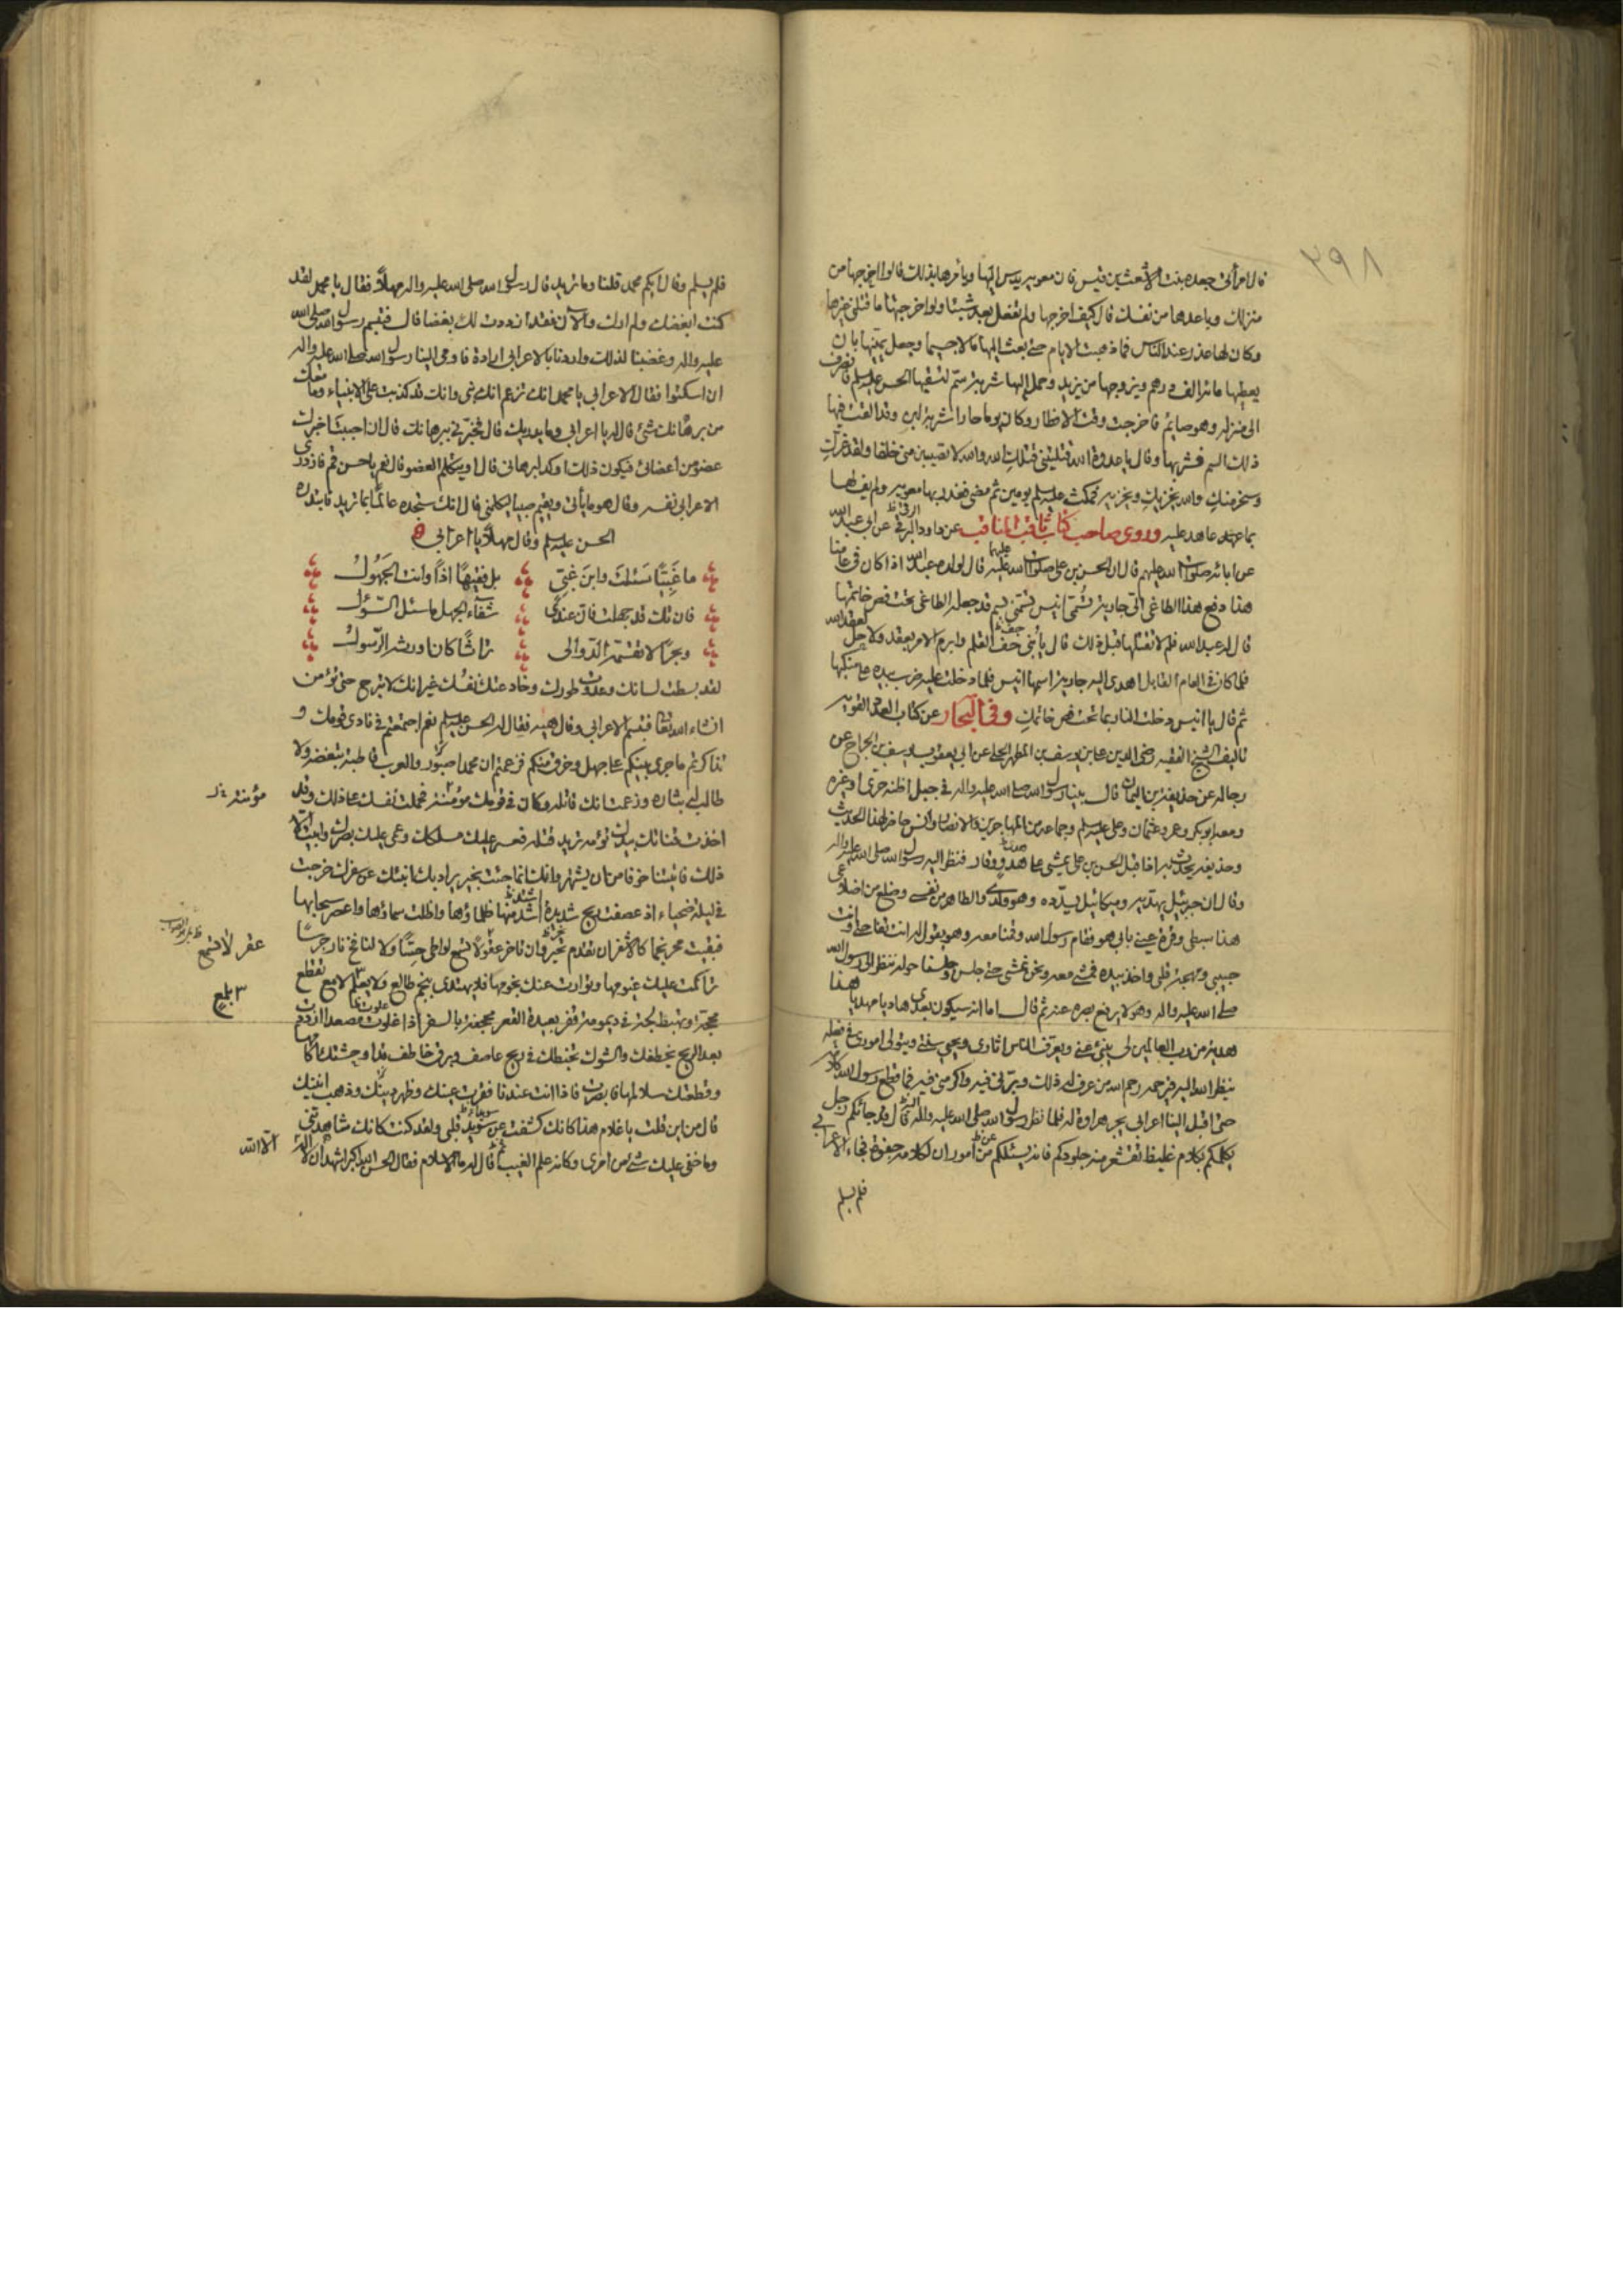 ٣٩٨
قال امرأتي جعده بنت الاشعث بن قيس فان معويه يدس اليها ويأمرها بذلك قالوا اخرجها من
منزلك وباعدها من نفسك قال كيف اخرجها ولم تفعل بعد شيئا ولو اخرجتها ما قتلني غيرها
وكان لها عذر عند الناس فما ذهبت الايام حتى بعث اليها مالا جسيما وجعل يمنيها بان
يعطيها مائة الف درهم ويزوجها من يزيد وحمل اليها شربة سم لتسقيها الحسن عليه السلم فانصرف
الى منزله وهو صائم فاخرجت وقت الافطار وكان يوما حارا شربة لبن وقد القت فيها
ذلك السم فشربها وقال يا عدوة الله قتلتيني قتلك الله والله لا تصيبين مني خلفا ولقد غرك
وسخر منك والله يخزيك ويخزيه فمكث عليه السلم يومين ثم مضى فغدر بها معويه ولم يف لها
بما عهد عاهد عليه وروى صاحب كتاب ثاقب المناقب عن داود الرقي عن ابي عبد الله
عن ابائه صلوات الله عليهم قال ان الحسن بن علي صلوات الله عليهما قال لولده عبد الله اذا كان في عامنا
هذا دفع هذا الطاغي الي جارية تسمى انيس تسمني بسم قد جعله الطاغي تحت فص خاتمها
قال له عبد الله فلم لا تقتلها قبل ذلك قال يا بني جف القلم وابرم الامر بعقد ولا حل لعقد الله
فلما كان في العام القابل اهدى اليه جارية اسمها انيس فلما دخلت عليه ضرب بيده على منكبها
ثم قال يا انيس دخلت النار بما تحت فص خاتمك وفي البحار عن كتاب العدد القويه
تاليف الشيخ الفقيه رضي الدين علي بن يوسف بن المطهر الحلي عن ابي يعقوب يوسف بن الجراح عن
رجاله عن حذيفة بن اليمان قال بينا رسول الله صلى الله عليه واله في جبل اظنه حرى او غيره
ومعه ابو بكر وعمر وعثمان وعلي عليه السلم وجماعة من المهاجرين والانصار وانس حاضر لهذا الحديث
وحذيفة يحدث به اذا قبل الحسن بن علي يمشي على هدو ووقار فنظر اليه رسول الله صلى الله عليه واله
وقال ان جبرئيل يهديه وميكائيل يسدده وهو ولدي والطاهر من نفسي وضلع من اضلاعي
هذا سبطي وقرة عيني بابي هو فقام رسول الله وقمنا معه وهو يقول له انت تفاحتي وانت
حبيبي ومهجة قلبي واخذ بيده فمشى معه ونحن نمشي حتى جلس وجلسنا حوله ننظر الى رسول الله
صلى الله عليه واله وهو لا يرفع بصره عنه ثم قال اما انه سيكون بعدي هاديا مهديا هذا
هدية من رب العالمين لي ينبئ عني ويعرف الناس اثاري ويحيي سنتي ويتولى اموري في فعله
ينظر الله اليه فيرحمه رحم الله من عرف له ذلك وبرني فيه واكرمني فيه فما قطع رسول الله كلامه
حتى اقبل الينا اعرابي يجر هراوة له فلما نظر رسول الله صلى الله عليه واله اليه قال قد جائكم رجل
يكلمكم بكلام غليظ تقشعر منه جلودكم فانه يسئلكم عن امور ان لكلامه جفوة فجاء الاعرابي
فلم يسلم
فلم يسلم وقال ايكم محمد قلنا وما تريد قال رسول الله صلى الله عليه واله مهلاً فقال يا محمد لقد
كنت ابغضك ولم ارك والآن فقد ازددت لك بغضا قال فتبسم رسول الله صلى الله
عليه واله وغضبنا لذلك واردنا بالاعرابي ارادة فاومى الينا رسول الله صلى الله عليه واله
ان اسكتوا فقال الاعرابي يا محمد انك تزعم انك نبي وانك قد كذبت على الانبياء وما معك
من برهانك شئ قال له يا اعرابي وما يدريك قال فخبرني ببرهانك قال ان احببت اخبرك
عضو من اعضائي فيكون ذلك اوكد لبرهاني قال او يتكلم العضو قال نعم يا حسن قم فازدرى
الاعرابي نفسه وقال هو ما يأتي ويقيم صبيا ليكلمني قال انك ستجده عالما بما تريد فابتدره
الحسن عليه السلم وقال مهلاً يا اعرابي
ما غبيًا سئلت وابن غبي بل فقيهًا اذًا وانت الجهول
فان تك قد جهلت فان عندي شفاء الجهل ما سئل السؤل
وبحرًا لا تقسمه الدوالي تراثًا كان اورثه الرسول
لقد بسطت لسانك وعدوت طورك وخادعت نفسك غير انك لا تبرح حتى تؤمن
انشاء الله تعالى فتبسم الاعرابي وقال هيه فقال له الحسن عليه السلم نعم اجتمعتم في نادي قومك و
تذاكرتم ما جرى بينكم على جهل وخرق منكم فزعمتم ان محمدا صنبور والعرب قاطبة تبغضه ولا
طالب له بثاره وزعمت انك قاتله وكان في قومك مؤنته فحملت نفسك على ذلك وقد
مؤنته
اخذت قناتك بيدك تؤمه تريد قتله فعسر عليك مسلكك وعمي عليك بصرك وابيت الا
ذلك فاتيتنا خوفا من ان يشتهر وانك انما جئت بخير يراد بك انبئك عن سفرك خرجت
في ليلة ضحياء اذ عصفت ريح شديدة اشتد منها ظلماؤها واظلت سماؤها واعصر سحابها
فبقيت محرنجما كالاشقر ان تقدم نحر وان تاخر عقر لا تسمع لواطئ حسًا ولا لنافخ نار جرسًا
عقر لا تسمع
تراكمت عليك غيومها وتوارت عنك نجومها فلا تهتدي بنجم طالع ولا بعلم لامع تقطع
٣ بلغ
محجة وتهبط لجة في ديمومة قفر بعيدة القعر مجحفة بالسفر اذا علوت مصعدا ازددت
بعدا الريح تخطفك والشوك تخبطك في ريح عاصف وبرق خاطف قد اوحشتك اكامها
وقطعتك سلامها فابصرت فاذا انت عندنا فقرت عينك وظهر رينك وذهب انينك
قال من اين قلت يا غلام هذا كانك كشفت عن سويد قلبي ولقد كنت كانك شاهدتني
وما خفي عليك شئ من امري وكانه علم الغيب قال له ما الاسلام فقال الحسن الله اكبر اشهد ان لا اله
الا الله